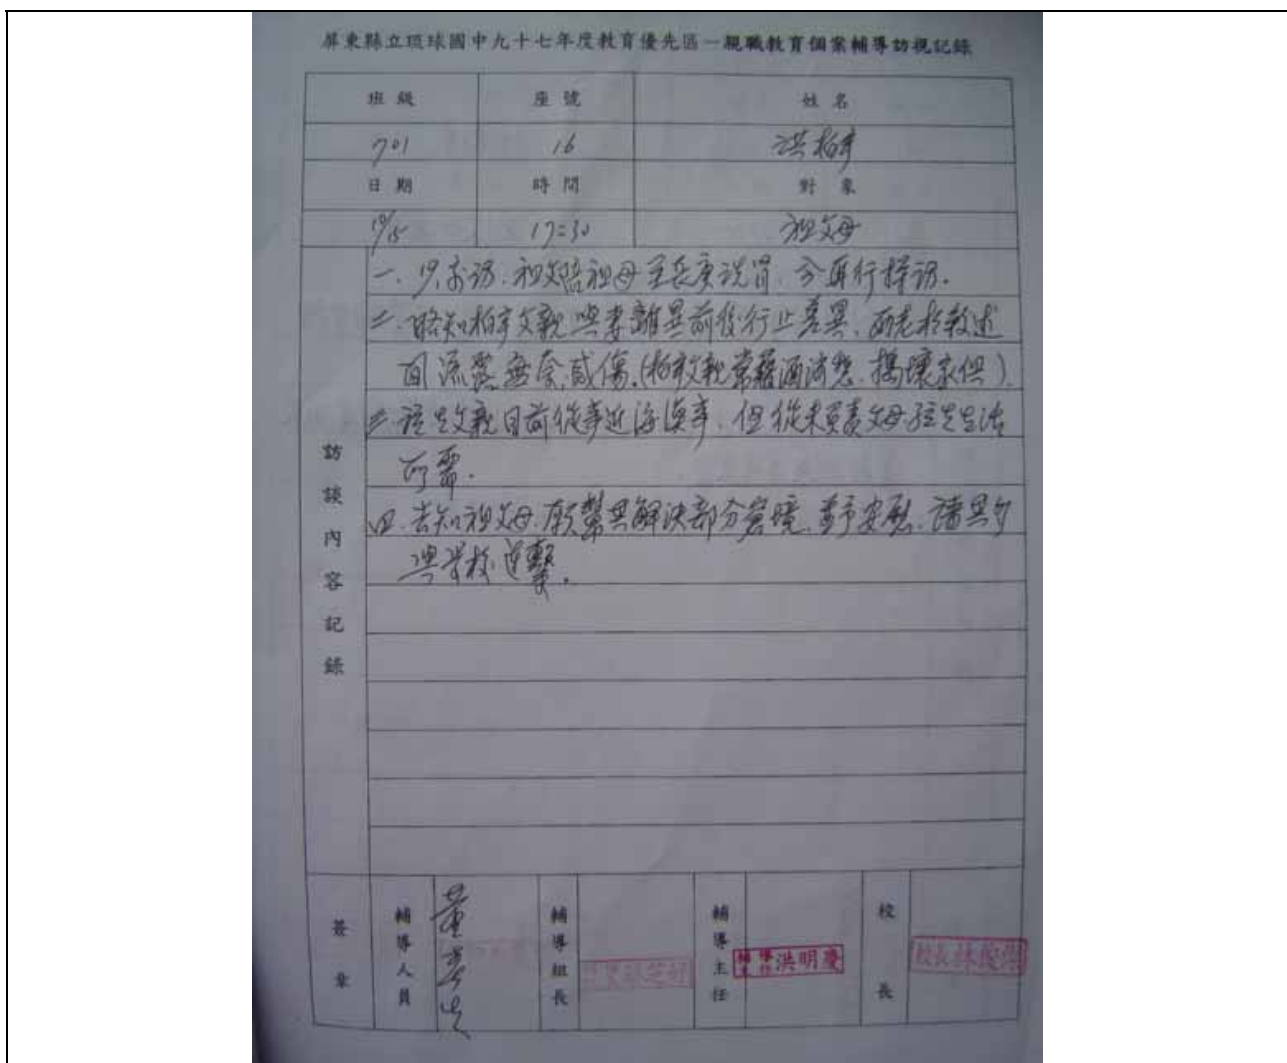 屏東縣立琉球國中九十七年度教育優先區－親職教育個案輔導訪視記錄
班級 座號 姓名
701 16 洪柏宇
日期 時間 對象
10/15 17:30 祖父母
訪談內容記錄
祖父陪祖母至長庚 今再行探訪.
二.略知柏宇父親與妻離異前後行止差異,兩老於敘述
間流露無奈感傷.(柏宇父親常藉酒消愁.搗壞家俱).
三.該生父親目前從事近海漁事,但從未負責父母孩生生活
所需.
四.告知祖父母,願幫其解決部分窘境,並予安慰,請其多
與學校連繫.
簽章 輔導人員 輔導組長 輔導主任 校長
輔導主任 洪明慶
校長林